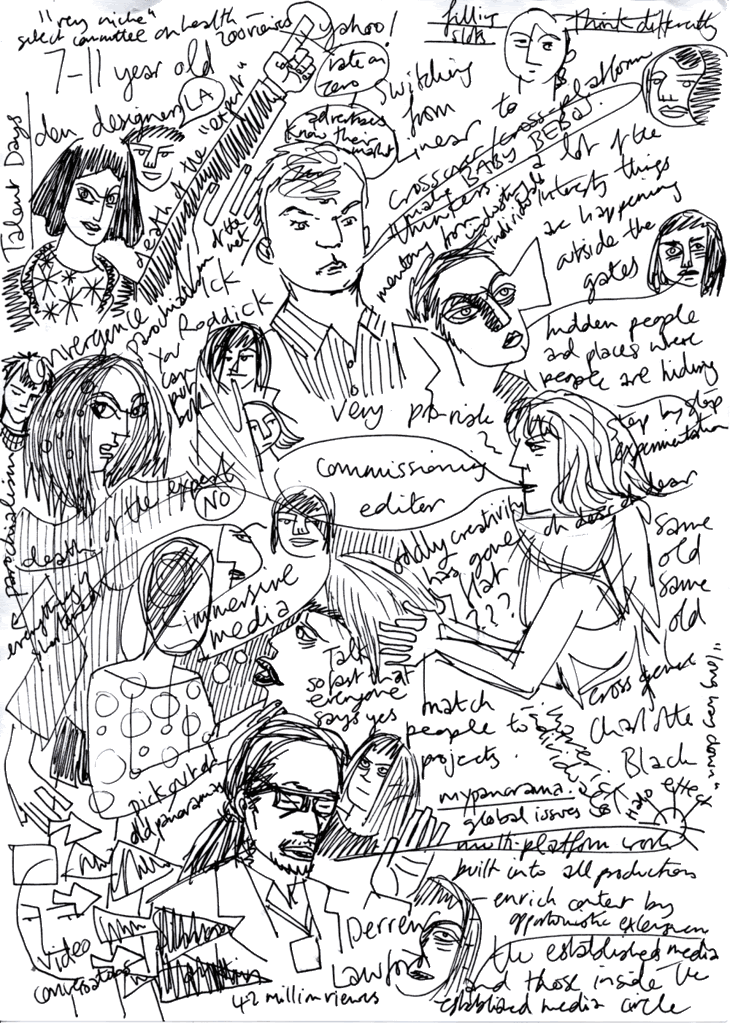 "very niche"
select committee on health
200 views
yahoo!
filling
slots
Think differently
7-11 year old
rate on
zero
den designers
LA
Talent Days
death of the "expert"
advertisers
know their
market
switching
from
linear to
cross over / cross-platform
BABY BEBO.
thinkers
mentoring from industry
individuals
a lot of the
interesting things
are happening
outside the
gates
hidden people
and places where
people are hiding
convergence
parochialism of the
net
Roddick
can
very pro-risk
step by step
experimentation
commissioning
editor
death of the expert
NO
parochialism
oh dear oh dear
oddly creativity
has gone
flat
???
same
old
same
old
immersive
media
Talk
so fast that
everyone
says yes
match
people to
projects
cross genre
Charlotte
Black
"long way down"
Halo effect
old panoramas
mypanorama.
global issues
multi-platform work
built into all productions
- enrich content by
opportunistic extension
Derren
Lawford
the established media
and those inside the
established media circle
video
conversations
42 million views